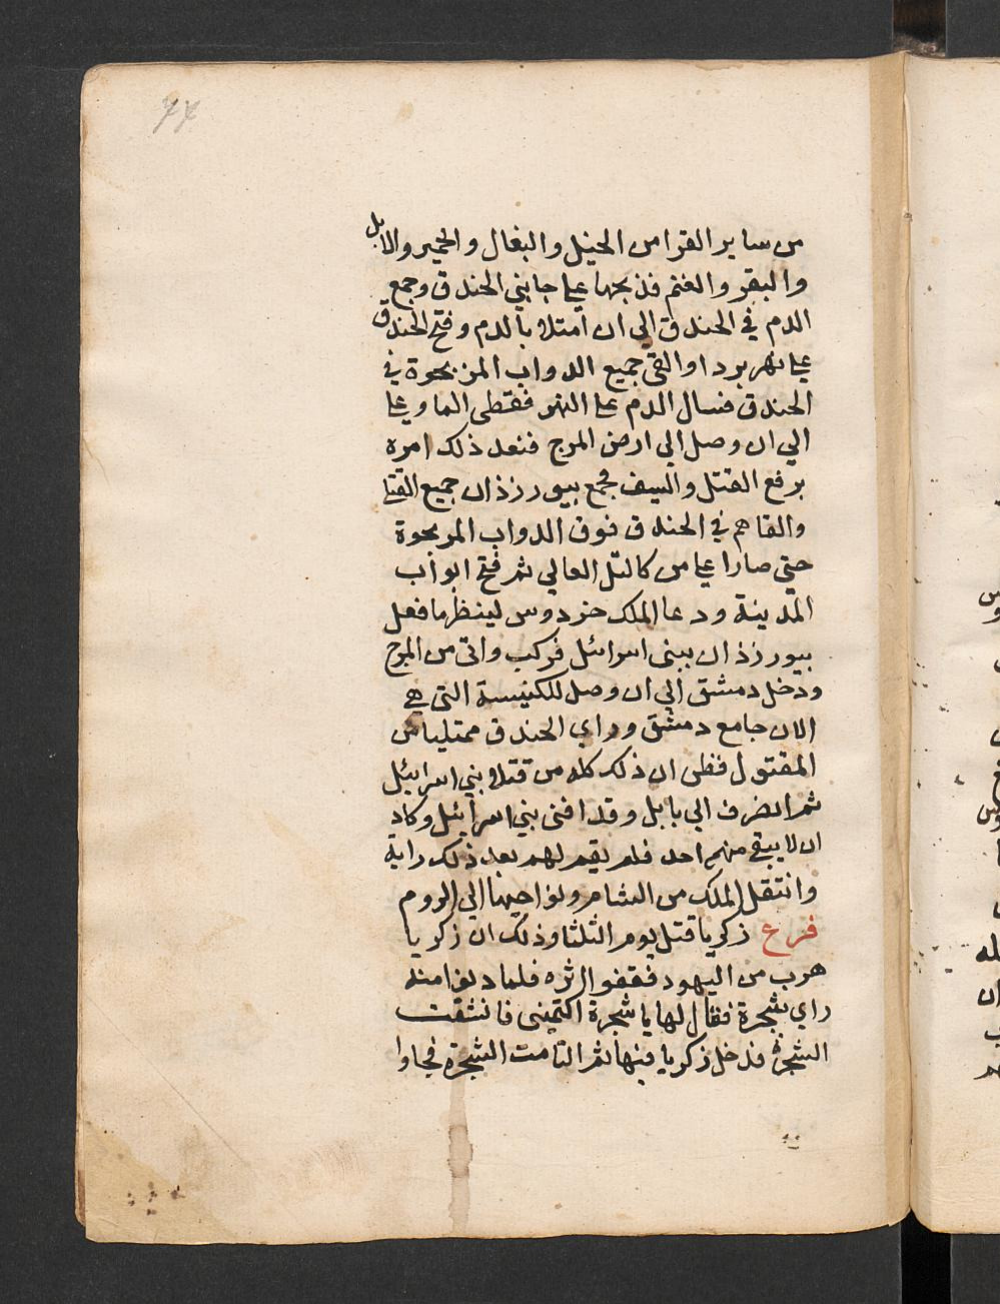 ٧٧
من ساير القرا من الخيل والبغال والحمير والابل
والبقر والغنم فذبحها علي جانبي الخندق وجمع
الدم في الخندق الي ان امتلا بالدم وفتح الخندق
علي نهر بردا والقي جميع الدواب المذبحوة في
الخندق فسال الدم علي النهر فغطي الما وعلي
الي ان وصل الي ارض المرج فنعد ذلك امره
برفع القتل والسيف فجمع بيورزذان جميع القتلي
والقاهم في الخندق فوق الدواب المدبحوة
حتي صارا علي من كالتل العالي ثم فتح ابواب
المدينة ودعا الملك حردوس لينظر ما فعل
بيورزذان ببني اسرائيل فركب واتي من المرج
ودخل دمشق الي ان وصل للكنيسة التي هي
الان جامع دمشق وراي الخندق ممتليا من
المقتول فظن ان ذلك كله من قتلا بني اسرائيل
ثم انصرف الي بابل وقد افني بني اسرائيل وكاد
ان لا يبقي منهم احد فلم يقم لهم بعد ذلك راية
وانتقل الملك من الشام ونواحيها الي الروم
فرع زكريا قتل يوم الثلثا وذلك ان زكريا
هرب من اليهود فقفوا اثره فلما دنوا منه
راي شجرة فقال لها يا شجرة اكتميني فانشقت
الشجرة فدخل زكريا فيها ثم التامت الشجرة فجاوا